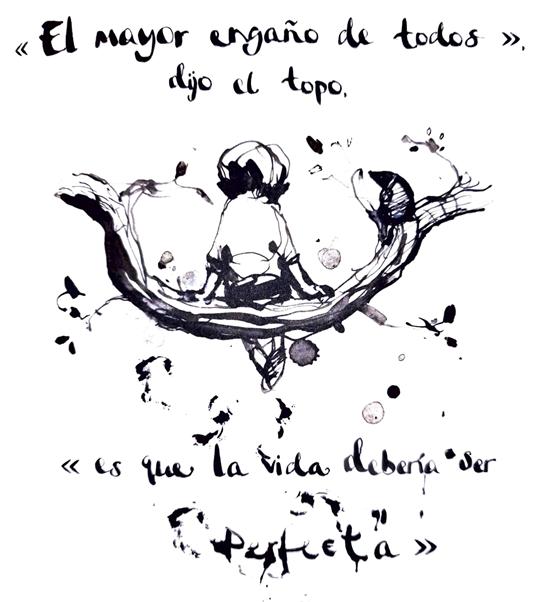 « El mayor engaño de todos »,
dijo el topo,
« es que la vida debería ser
Perfecta »